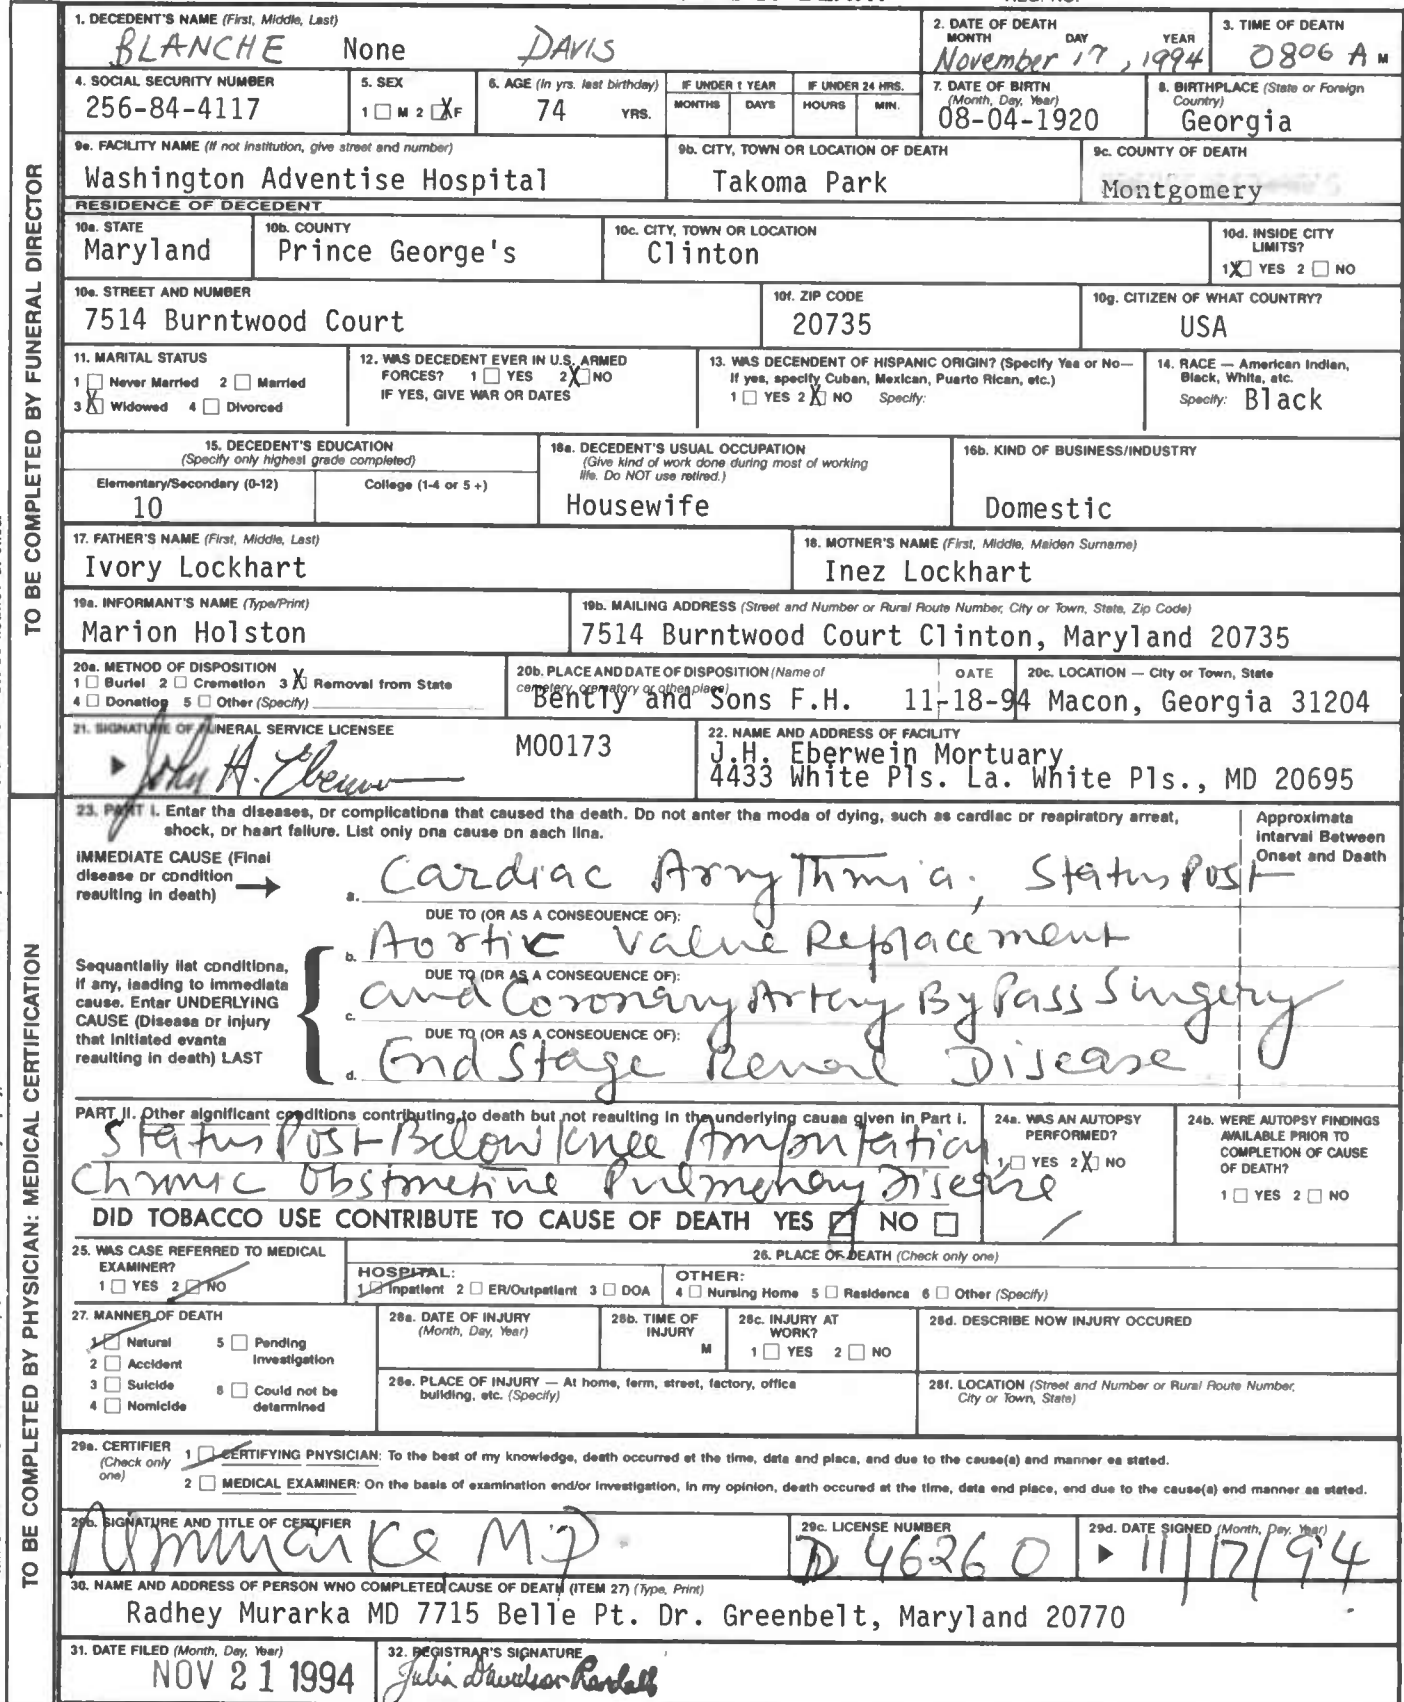 1. DECEDENT'S NAME (First, Middle, Last)
BLANCHE None DAVIS
2. DATE OF DEATH
MONTH DAY YEAR
November 17, 1994
3. TIME OF DEATH
0806 A M
4. SOCIAL SECURITY NUMBER
256-84-4117
5. SEX
1 ☐ M 2 ☒ F
6. AGE (In yrs. last birthday)
74 YRS.
IF UNDER 1 YEAR
MONTHS DAYS
IF UNDER 24 HRS.
HOURS MIN.
7. DATE OF BIRTH
(Month, Day, Year)
08-04-1920
8. BIRTHPLACE (State or Foreign
Country)
Georgia
9a. FACILITY NAME (If not institution, give street and number)
Washington Adventise Hospital
9b. CITY, TOWN OR LOCATION OF DEATH
Takoma Park
9c. COUNTY OF DEATH
Montgomery
RESIDENCE OF DECEDENT
10a. STATE
Maryland
10b. COUNTY
Prince George's
10c. CITY, TOWN OR LOCATION
Clinton
10d. INSIDE CITY
LIMITS?
1 ☒ YES 2 ☐ NO
10e. STREET AND NUMBER
7514 Burntwood Court
10f. ZIP CODE
20735
10g. CITIZEN OF WHAT COUNTRY?
USA
11. MARITAL STATUS
1 ☐ Never Married 2 ☐ Married
3 ☒ Widowed 4 ☐ Divorced
12. WAS DECEDENT EVER IN U.S. ARMED
FORCES? 1 ☐ YES 2 ☒ NO
IF YES, GIVE WAR OR DATES
13. WAS DECENDENT OF HISPANIC ORIGIN? (Specify Yes or No—
If yes, specify Cuban, Mexican, Puerto Rican, etc.)
1 ☐ YES 2 ☒ NO Specify:
14. RACE — American Indian,
Black, White, etc.
Specify: Black
15. DECEDENT'S EDUCATION
(Specify only highest grade completed)
Elementary/Secondary (0-12) College (1-4 or 5+)
10
16a. DECEDENT'S USUAL OCCUPATION
(Give kind of work done during most of working
life. Do NOT use retired.)
Housewife
16b. KIND OF BUSINESS/INDUSTRY
Domestic
17. FATHER'S NAME (First, Middle, Last)
Ivory Lockhart
18. MOTHER'S NAME (First, Middle, Maiden Surname)
Inez Lockhart
19a. INFORMANT'S NAME (Type/Print)
Marion Holston
19b. MAILING ADDRESS (Street and Number or Rural Route Number, City or Town, State, Zip Code)
7514 Burntwood Court Clinton, Maryland 20735
20a. METHOD OF DISPOSITION
1 ☐ Burial 2 ☐ Cremation 3 ☒ Removal from State
4 ☐ Donation 5 ☐ Other (Specify)
20b. PLACE AND DATE OF DISPOSITION (Name of
cemetery, crematory or other place)
DATE
Bently and Sons F.H. 11-18-94
20c. LOCATION — City or Town, State
Macon, Georgia 31204
21. SIGNATURE OF FUNERAL SERVICE LICENSEE
M00173
22. NAME AND ADDRESS OF FACILITY
J.H. Eberwein Mortuary
4433 White Pls. La. White Pls., MD 20695
TO BE COMPLETED BY FUNERAL DIRECTOR
23. PART I. Enter the diseases, or complications that caused the death. Do not enter the mode of dying, such as cardiac or respiratory arrest,
shock, or heart failure. List only one cause on each line.
Approximate
Interval Between
Onset and Death
IMMEDIATE CAUSE (Final
disease or condition
resulting in death)
a. Cardiac Arrythmia, Status Post
DUE TO (OR AS A CONSEQUENCE OF):
b. Aortic Value Replacement
DUE TO (OR AS A CONSEQUENCE OF):
c. and Coronary Artery By Pass Surgery
DUE TO (OR AS A CONSEQUENCE OF):
d. End Stage Renal Disease
Sequentially list conditions,
if any, leading to immediate
cause. Enter UNDERLYING
CAUSE (Disease or injury
that initiated events
resulting in death) LAST
PART II. Other significant conditions contributing to death but not resulting in the underlying cause given in Part I.
Status Post Below Knee Amputation
Chronic Obstructive Pulmonary Disease
DID TOBACCO USE CONTRIBUTE TO CAUSE OF DEATH YES ☑ NO ☐
24a. WAS AN AUTOPSY
PERFORMED?
1 ☐ YES 2 ☒ NO
24b. WERE AUTOPSY FINDINGS
AVAILABLE PRIOR TO
COMPLETION OF CAUSE
OF DEATH?
1 ☐ YES 2 ☐ NO
25. WAS CASE REFERRED TO MEDICAL
EXAMINER?
1 ☐ YES 2 ☑ NO
26. PLACE OF DEATH (Check only one)
HOSPITAL:
1 ☑ Inpatient 2 ☐ ER/Outpatient 3 ☐ DOA
OTHER:
4 ☐ Nursing Home 5 ☐ Residence 6 ☐ Other (Specify)
27. MANNER OF DEATH
1 ☑ Natural 5 ☐ Pending
Investigation
2 ☐ Accident
3 ☐ Suicide 6 ☐ Could not be
determined
4 ☐ Homicide
28a. DATE OF INJURY
(Month, Day, Year)
28b. TIME OF
INJURY
M
28c. INJURY AT
WORK?
1 ☐ YES 2 ☐ NO
28d. DESCRIBE HOW INJURY OCCURED
28e. PLACE OF INJURY — At home, farm, street, factory, office
building, etc. (Specify)
28f. LOCATION (Street and Number or Rural Route Number,
City or Town, State)
29a. CERTIFIER
(Check only
one)
1 ☑ CERTIFYING PHYSICIAN: To the best of my knowledge, death occurred at the time, date and place, and due to the cause(s) and manner as stated.
2 ☐ MEDICAL EXAMINER: On the basis of examination and/or investigation, in my opinion, death occured at the time, date and place, and due to the cause(s) and manner as stated.
29b. SIGNATURE AND TITLE OF CERTIFIER
MD
29c. LICENSE NUMBER
D 46260
29d. DATE SIGNED (Month, Day, Year)
11/17/94
30. NAME AND ADDRESS OF PERSON WHO COMPLETED CAUSE OF DEATH (ITEM 27) (Type, Print)
Radhey Murarka MD 7715 Belle Pt. Dr. Greenbelt, Maryland 20770
31. DATE FILED (Month, Day, Year)
NOV 21 1994
32. REGISTRAR'S SIGNATURE
Julia Davidson Randall
TO BE COMPLETED BY PHYSICIAN: MEDICAL CERTIFICATION